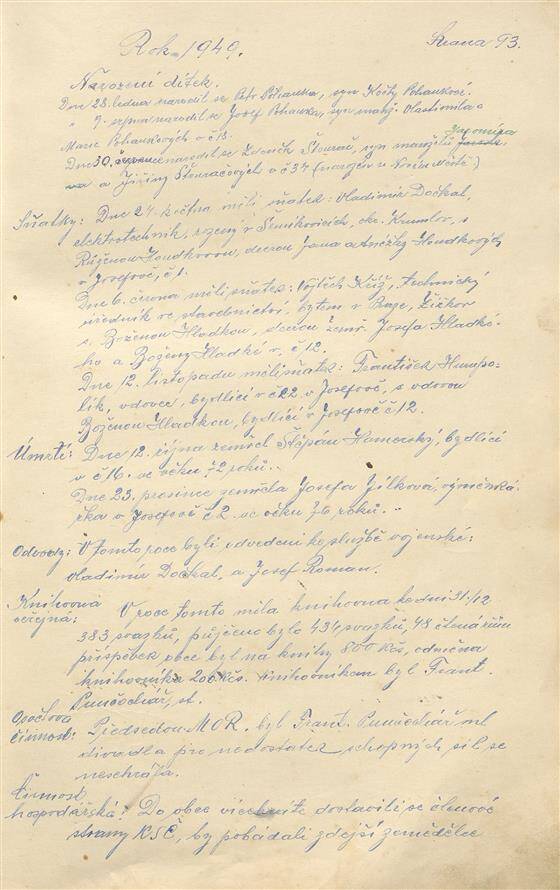 Rok 1949.
Strana 93.
Narození dítek.
Dne 28. ledna narodil se Petr Pohanka, syn Květy Pohankové.
" 9. srpna narodil se Josef Pohanka, syn manž. Vlastimila a
Marie Pohankových v č 18.
Jaromíra
Dne 30. července narodil se Zdeněk Šťourač, syn manželů
a Jiřiny Šťouračových v č 34 (narozen v Novém Městě)
Sňatky: Dne 24. května měli sňatek: Vladimír Dočkal,
elektrotechnik, rozený v okr. Krumlov, s
Růženou Houdkovou, dcerou Jana a Anežky Houdkových
v Josefově, č 1.
Dne 6. února měli sňatek: Vojtěch Kříž, technický
úředník ve stavebnictví, bytem v Praze, Žižkov
s Boženou Hladkou, dcerou zemř. Josefa Hladké-
ho a Boženy Hladké v č 12.
Dne 12. listopadu měli sňatek: František Humpo-
lík, vdovec, bydlící v č 22 v Josefově, s vdovou
Boženou Hladkou, bydlící v Josefově č 12.
Úmrtí: Dne 12. října zemřel Štěpán Hamerský, bydlící
v č 16. ve věku 72 roků.
Dne 23. prosince zemřela Josefa Jílková, výměnká-
řka v Josefově č 2. ve věku 76 roků.
Odvody: V tomto roce byli odvedeni ke službě vojenské:
Vladimír Dočkal, a Josef Roman.
Knihovna
veřejná: V roce tomto měla knihovna ke dni 31./12
383 svazků, půjčeno bylo 434 svazků, 48 čtenářům
příspěvek obce byl na knihy 800 Kčs, odměna
knihovníka 200 Kčs. Knihovníkem byl Frant.
Punčochář, st.
Osvětová
činnost: Předsedou MOR. byl Frant. Punčochář ml
divadla pro nedostatek schopných sil se
nesehrála.
Činnost
hospodářská: Do obce vícekráte dostavili se členové
strany KSČ, by pobádali zdejší zemědělce